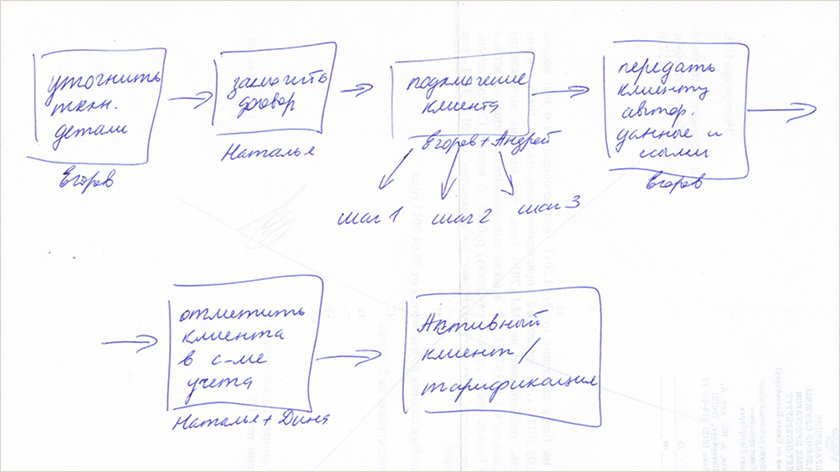 уточнить
техн.
детали
Егоров
заключить
договор
Наталья
подключение
клиента
Егоров + Андрей
шаг 1
шаг 2
шаг 3
передать
клиенту
автор.
данные и
ссылки
Егоров
отметить
клиента
в с-ме
учета
Наталья + Дина
Активный
клиент /
тарификация